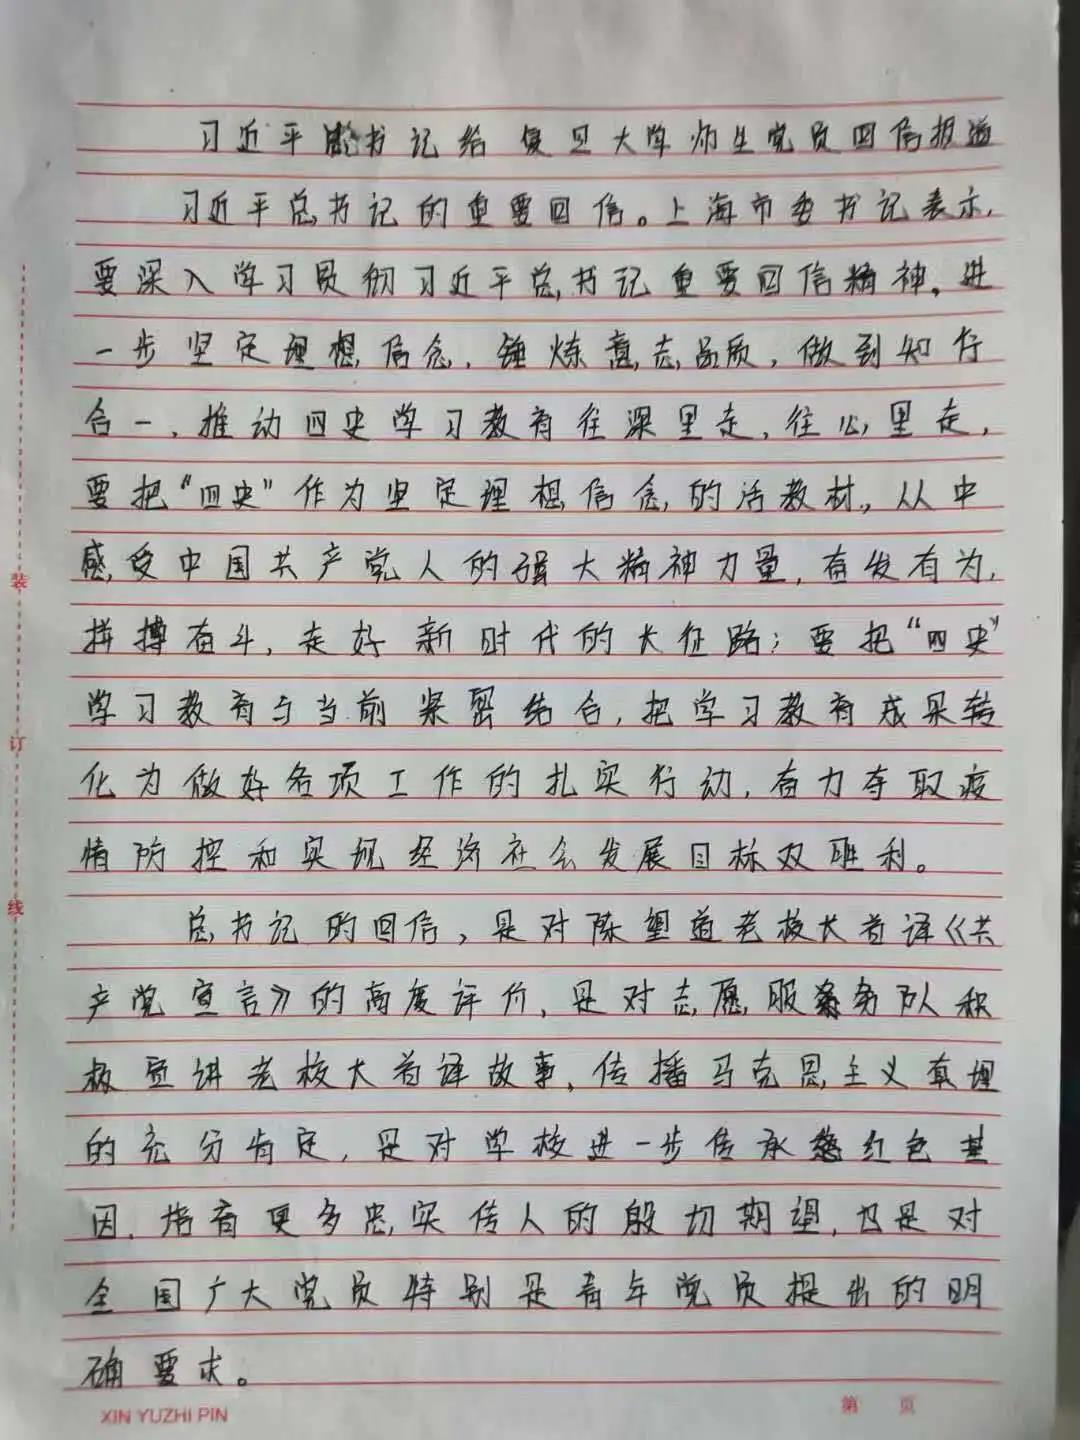 习近平总书记给复旦大学师生党员回信报道
习近平总书记的重要回信。上海市委书记表示，
要深入学习贯彻习近平总书记重要回信精神。进
一步坚定理想信念，锤炼意志品质，做到知行
合一，推动四史学习教育往深里走，往心里走，
要把“四史”作为坚定理想信念的活教材，从中
感受中国共产党人的强大精神力量，奋发有为，
拼搏奋斗，走好新时代的长征路；要把“四史”
学习教育与当前紧密结合，把学习教育成果转
化为做好各项工作的扎实行动，奋力夺取疫
情防控和实现经济社会发展目标双胜利。
总书记的回信，是对陈望道老校长首译《共
产党宣言》的高度评价，是对志愿服务队积
极宣讲老校长首译故事、传播马克思主义真理
的充分肯定，是对学校进一步传承红色基
因，培育更多忠实传人的殷切期望，也是对
全国广大党员特别是青年党员提出的明
确要求。
装
订
线
XIN YUZHI PIN
第 页